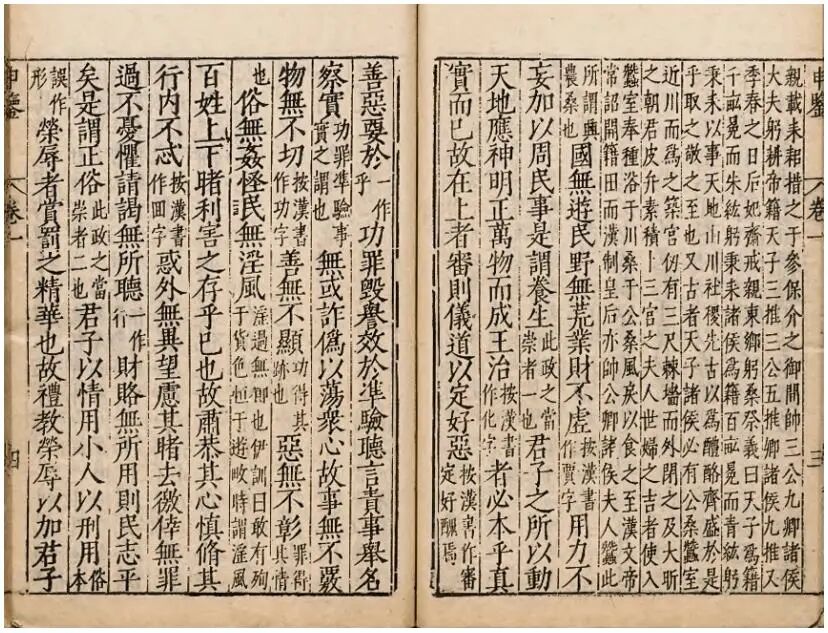 申鑒 卷一 三
親載耒耜措之于參保介之御間帥三公九卿諸侯
大夫躬耕帝籍天子三推三公五推卿諸侯九推又
季春之日后妃齊戒親東鄉躬桑祭義曰天子爲籍
千畝冕而朱紘躬秉耒諸侯爲籍百畝冕而青紘躬
秉耒以事天地山川社稷先古以爲醴酪齊盛於是
乎取之敬之至也又古者天子諸侯必有公桑蠶室
近川而爲之築宮仞有三尺棘墻而外閉之及大昕
之朝君皮弁素積卜三宮之夫人世婦之吉者使入
蠶室奉種浴于川桑于公桑風戾以食之至漢文帝
常詔開籍田而漢制皇后亦帥公卿諸侯夫人蠶此
所謂典農桑也國無遊民野無荒業財不虛按漢書作賈字用力不
妄加以周民事是謂養生此政之當崇者一也君子之所以動
天地應神明正萬物而成王治按漢書作化字者必本乎真
實而已故在上者審則儀道以定好惡按漢書作審定好醜焉
善惡要於一作乎功罪毀譽效於準驗聽言責事舉名
察實功罪準驗事實之謂也無或詐僞以蕩衆心故事無不覈
物無不切按漢書作功字善無不顯功得其跡也惡無不彰罪得其情
也俗無姦怪民無淫風淫過無節也伊訓曰敢有殉于貨色恒于遊畋時謂淫風
百姓上下睹利害之存乎己也故肅恭其心慎脩其
行內不忒按漢書作回字惑外無異望慮其睹去徼倖無罪
過不憂懼請謁無所聽一作行財賂無所用則民志平
矣是謂正俗此政之當崇者二也君子以情用小人以刑用俗本
誤作形榮辱者賞罰之精華也故禮教榮辱以加君子
申鑒 卷一 四